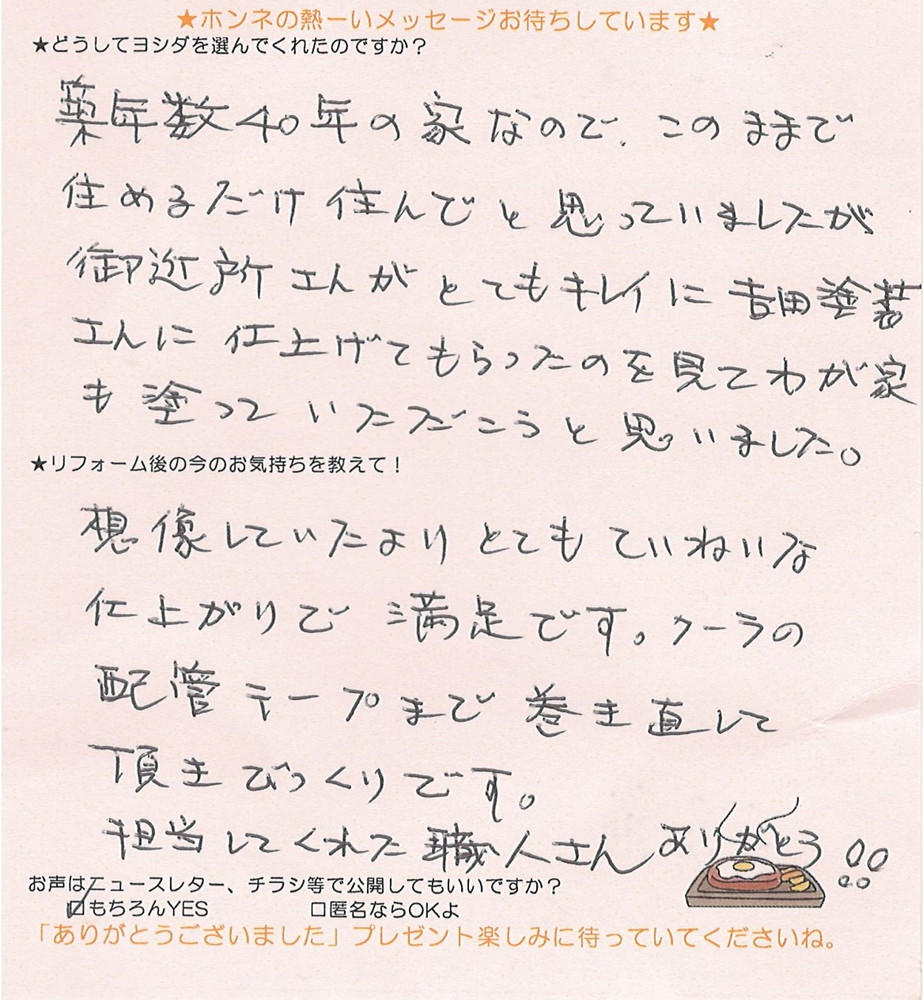 ★ホンネの熱ーいメッセージお待ちしています★
★どうしてヨシダを選んでくれたのですか?
築年数40年の家なので、このままで
住めるだけ住んでと思っていましたが
御近所さんがとてもキレイに吉田塗装
さんに仕上げてもらったのを見てわが家
も塗っていただこうと思いました。
★リフォーム後の今のお気持ちを教えて!
想像していたよりとてもていねいな
仕上がりで満足です。クーラの
配管テープまで巻き直して
頂きびっくりです。
担当してくれた職人さんありがとう!!
お声はニュースレター、チラシ等で公開してもいいですか?
☑もちろんYES □匿名ならOKよ
「ありがとうございました」プレゼント楽しみに待っていてくださいね。